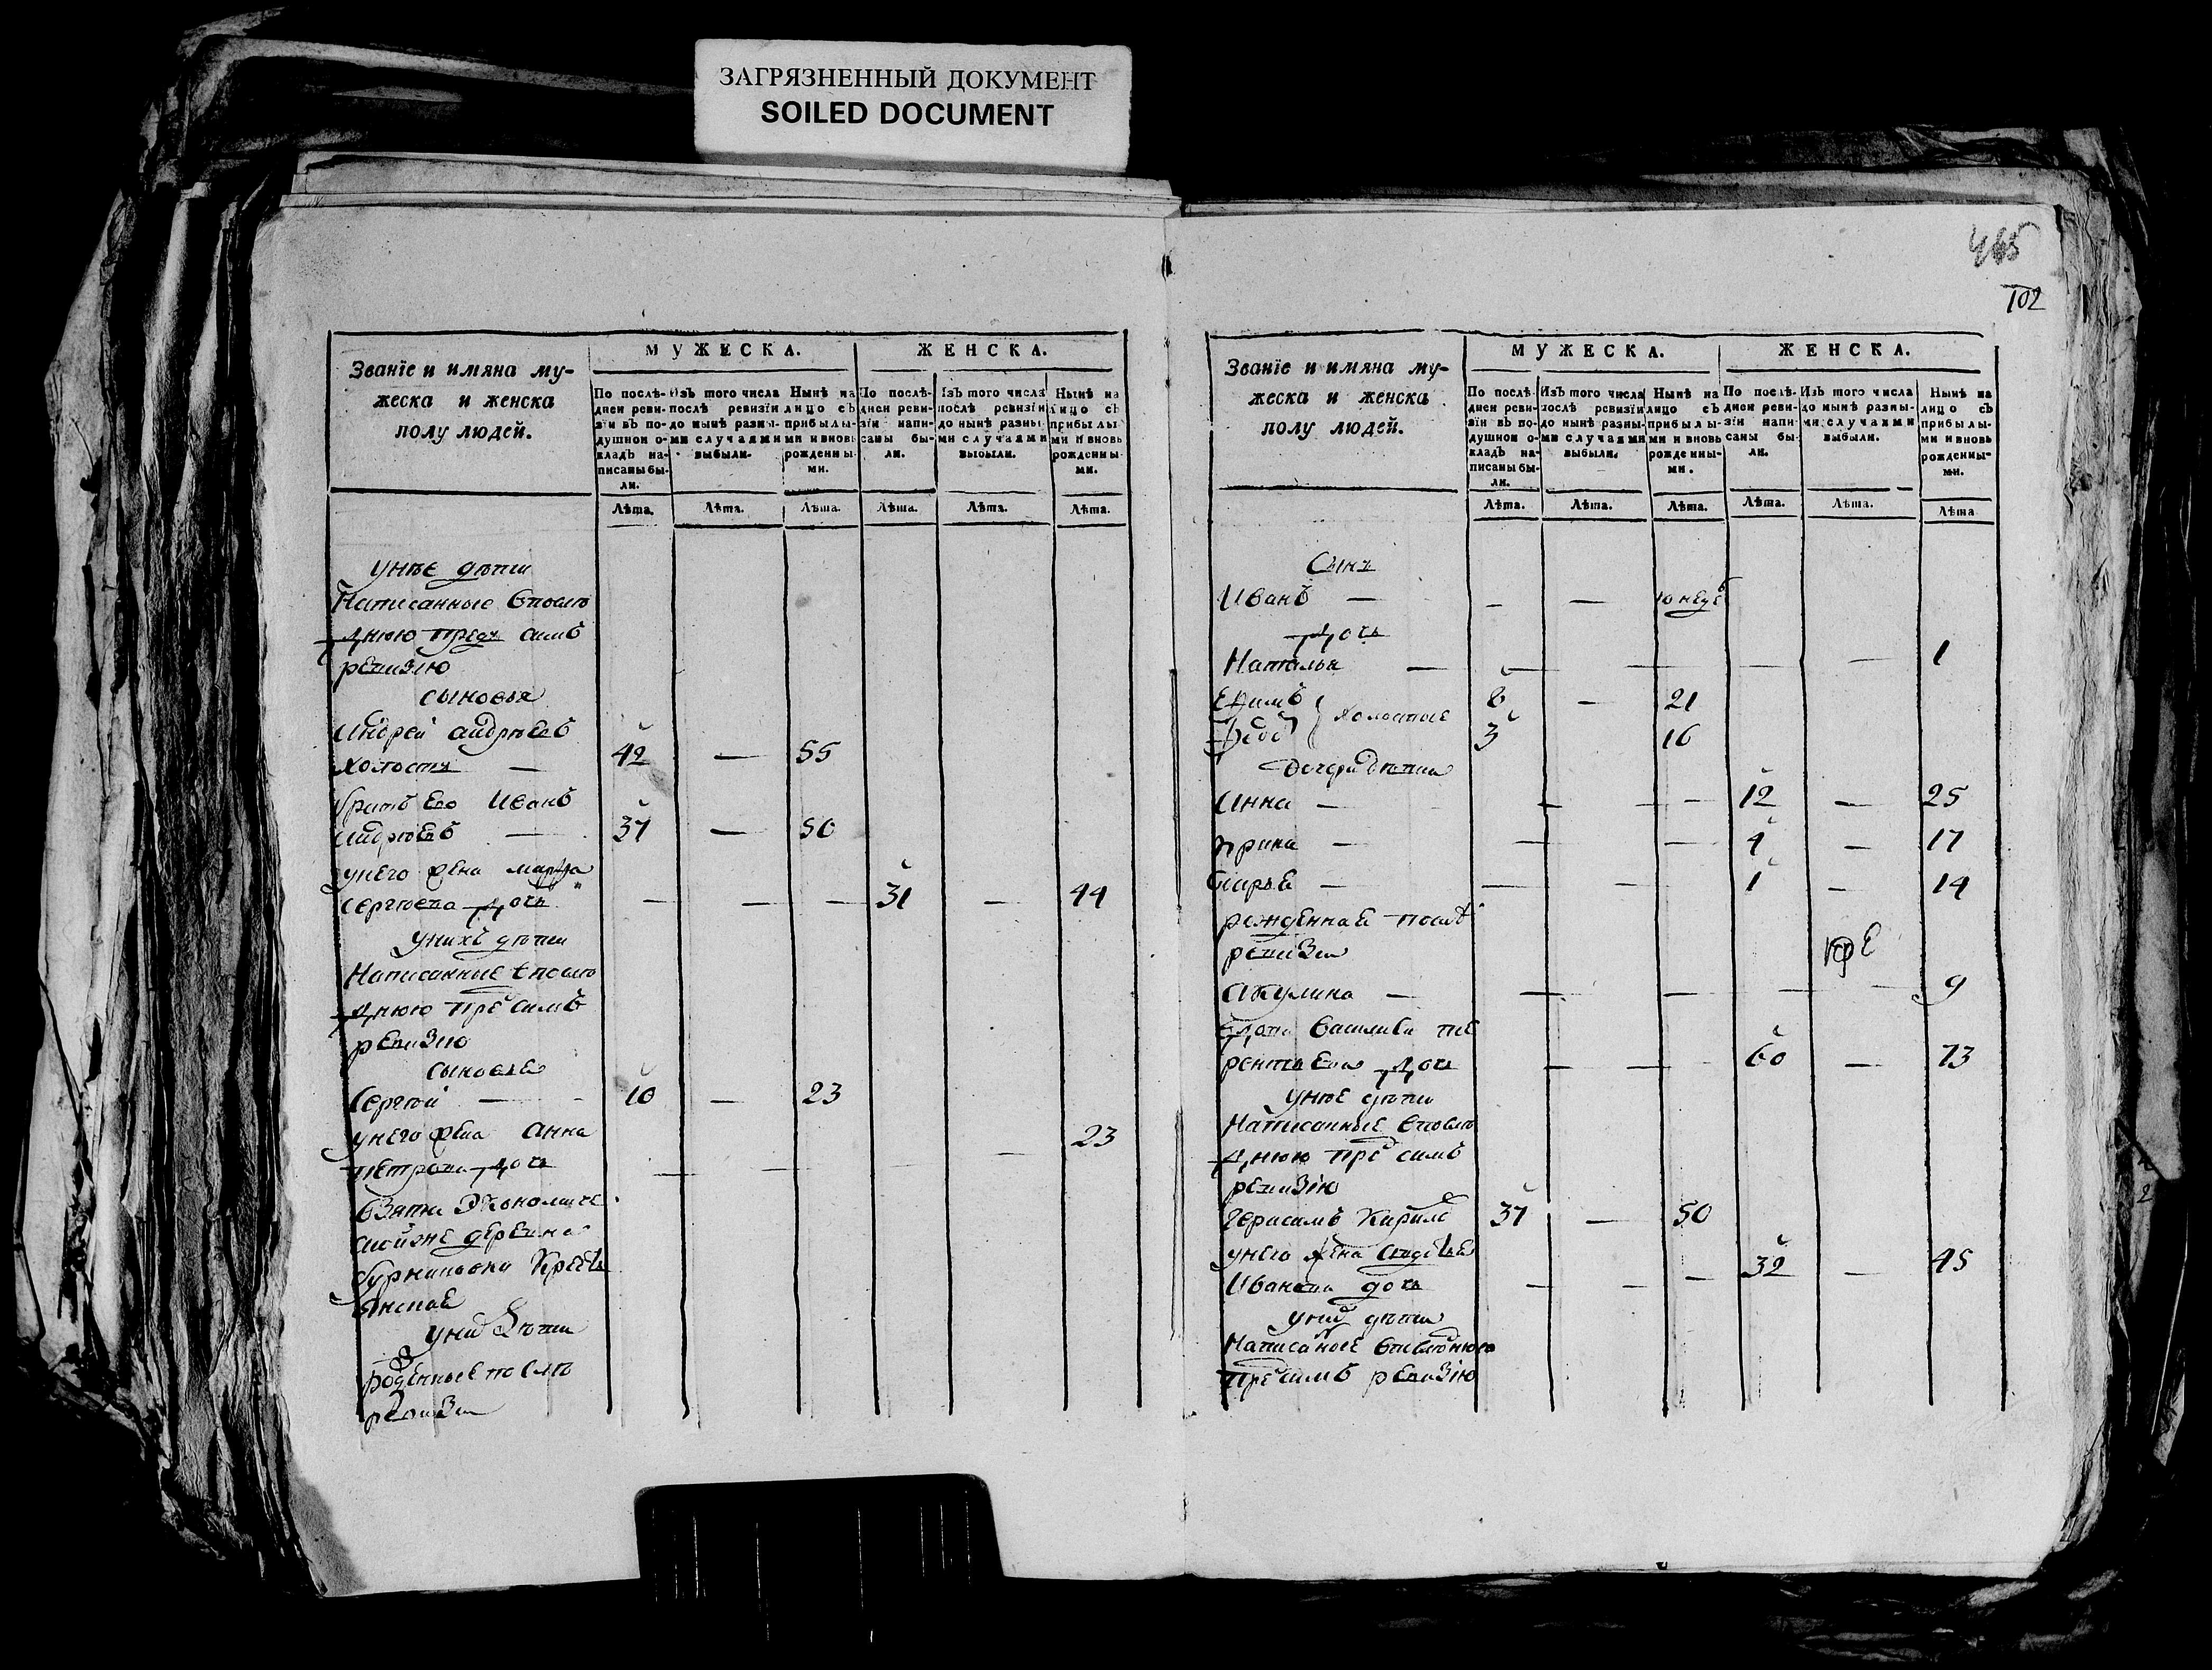 ЗАГРЯЗНЕННЫЙ ДОКУМЕНТ
SOILED DOCUMENT
Званїе и имяна му-
жеска и женска
полу людей.
МУЖЕСКА.
ЖЕНСКА.
По послѣ-
дней реви-
зїи въ по-
душной о-
кладъ на-
писаны бы-
ли.
Изъ того числа
послѣ ревизїи
до нынѣ разны-
ми случаями
выбыли.
Нынѣ на
лицо съ
прибылы-
ми и вновь
рожденны-
ми.
По послѣ-
дней реви-
зїи напи-
саны бы-
ли.
Изъ того числа
послѣ ревизїи
до нынѣ разны-
ми случаями
выбыли.
Нынѣ на
лицо съ
прибылы-
ми и вновь
рожденны-
ми.
Лѣта. Лѣта. Лѣта. Лѣта. Лѣта. Лѣта.
унѣе дѣти
Написанные впослѣ
днюю предъ симъ
ревизїю
сыновья
Андрей андрѣевъ
холостъ — 42 — 55
братъ Его Иванъ
андрѣевъ — 37 — 50
унего жена марфа
сергѣева дочь — — — 31 — 44
унихъ дѣти
Написанные впослѣ
днюю пре симъ
ревизїю
сыновья
Сергѣй — 10 — 23
унего жена Анна 23
петрова дочь — — — —
Взята Экономиче
ской деревни
крестъ
янская
уни дѣти
рожденные послѣ
ревизи
465
102
Званїе и имяна му-
жеска и женска
полу людей.
МУЖЕСКА.
ЖЕНСКА.
По послѣ-
дней реви-
зїи въ по-
душной о-
кладъ на-
писаны бы-
ли.
Изъ того числа
послѣ ревизїи
до нынѣ разны-
ми случаями
выбыли.
Нынѣ на
лицо съ
прибылы-
ми и вновь
рожденны-
ми.
По послѣ-
дней реви-
зїи напи-
саны бы-
ли.
Изъ того числа
до нынѣ разны-
ми случаями
выбыли.
Нынѣ на
лицо съ
прибылы-
ми и вновь
рожденны-
ми.
Лѣта. Лѣта. Лѣта. Лѣта. Лѣта. Лѣта
Сынъ
Иванъ — — — 10 неде
дочь
Наталья — — — — — 1
Ефимъ 8 — 21
холостые
Федо 3 16
Дочери дѣти
Анна — — — — 12 — 25
Ирина — — — 4 — 17
Дарья — — — 1 — 14
рожденная послѣ
ревизи
Акулина — — — — — 9
вдова Василиса те
рентьева дочь — — 60 — 73
унѣе дѣти
Написанные впослѣ
днюю пре симъ
ревизїю
Герасимъ Кирилъ 37 — 50
унего жена
Иванова дочь — — — 32 — 45
уни дѣти
Написаные впослѣднюю
пре симъ ревизїю